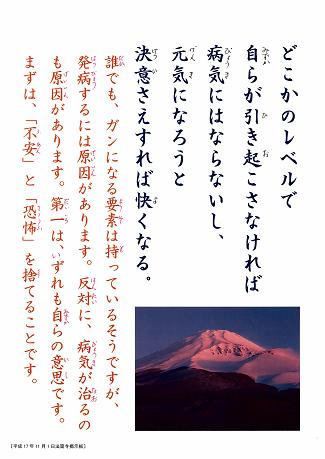 どこかのレベルで
自らが引き起こさなければ
病気にはならないし、
元気になろうと
決意さえすれば快くなる。
誰でも、ガンになる要素は持っているそうですが、
発病するには原因があります。反対に、病気が治るの
も原因があります。第一は、いずれも自らの意思です。
まずは、「不安」と「恐怖」を捨てることです。